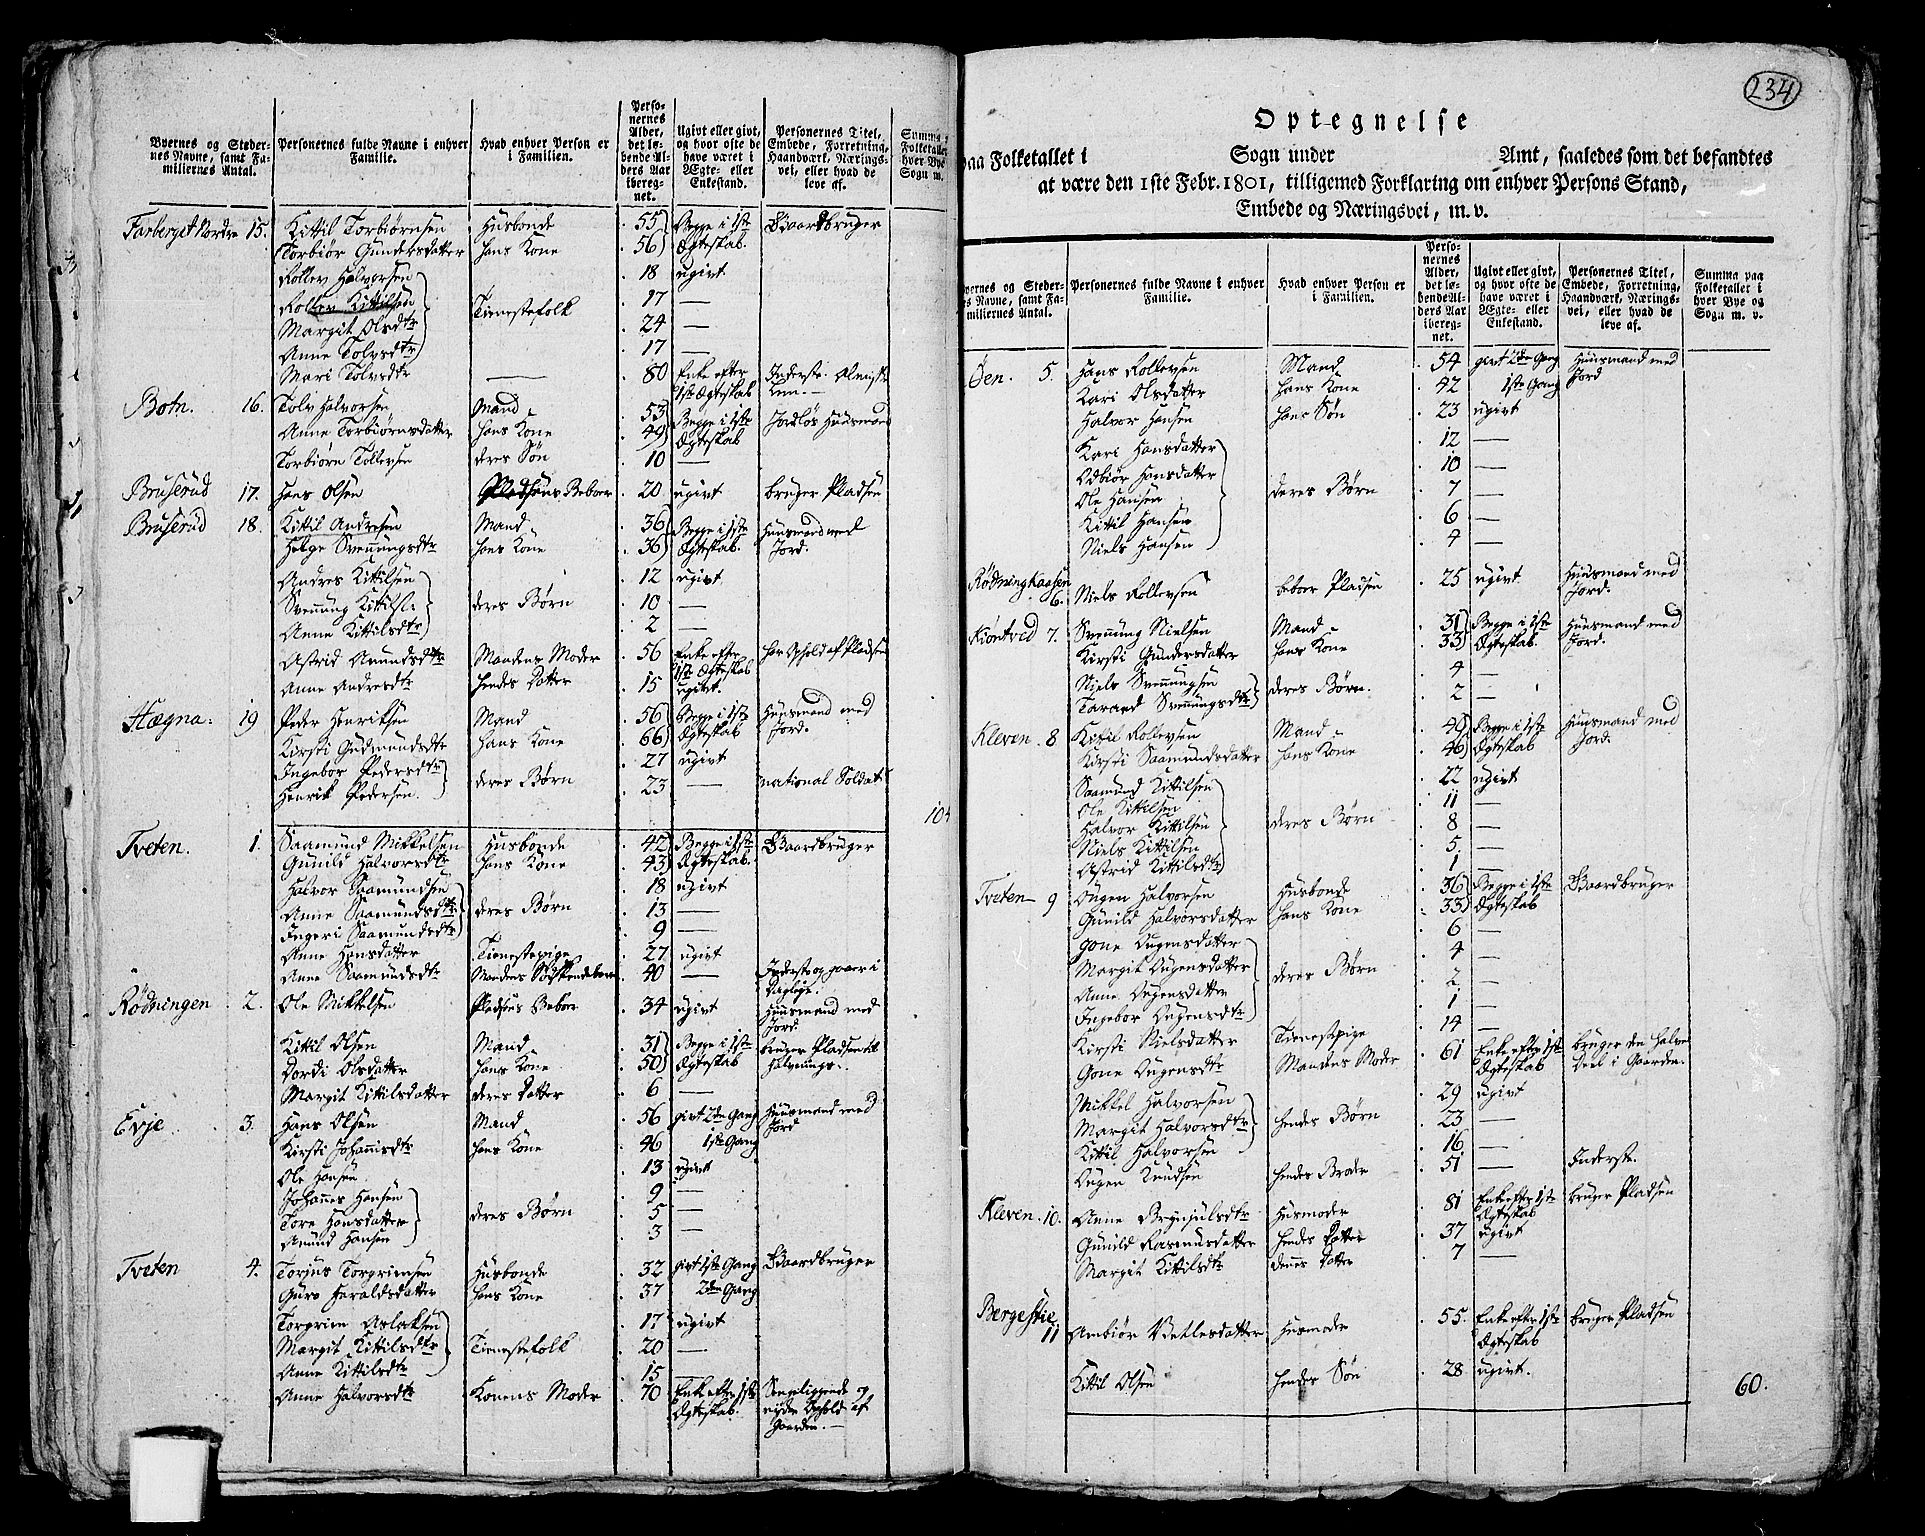 Byernes og Steder-
nes Navne, samt Fa-
miliernes Antal.
Personernes fulde Navne i enhver
Familie.
Hvad enhver Person er
i Familien.
Perso-
nernes
Alder,
det lø-
bende Al-
ders Aar
ibereg-
net.
Ugivt eller givt,
og hvor ofte de
have været i
Ægte- eller
Enkestand.
Personernes Titel,
Embede, Forretning,
Haandværk, Nærings-
vei, eller hvad de
leve af.
Summa
Folketallet
hver Bye
Sogn m.
Farberget Nordre 15. Kittil Torbiørnsen Husbonde 55 Begge i 1ste Gaardbruger
Torbiør Gundersdatter hans Kone 56 Ægteskab.
Rollev Halvorsen 18 ugivt
Rollev Kittilsen 17 —
Margit Olsdtr Tienestefolk 24 —
Anne Tolvsdtr 17 —
Mari Tolvsdtr — 80 Enke efter Inderste.
1ste Ægteskab
Botn. 16. Tolv Halvorsen Mand 53 Begge i 1ste Jordløs Huusmand
Anne Torbiørnsdatter hans Kone 49 Ægteskab
Torbiørn Tollevsen deres Søn 10 —
Bruserud 17. Hans Olsen Pladsens Beboer 20 ugivt bruger Pladsen
Bruserud 18. Kittil Andresen Mand 36 Begge i 1ste Huusmand med
Helge Svenungsdtr hans Kone 36 Ægteskab. Jord.
Andres Kittilsen 12 ugivt
Svenung Kittilsen deres Børn 10 —
Anne Kittilsdtr 2 —
Astrid Amundsdtr Mandens Moder 56 Enke efter har Ophold af Pladsen
1ste Ægteskab
Anne Andresdtr hendes Datter 15 ugivt.
Hægna. 19 Peder Henriksen Mand 56 Begge i 1ste Huusmand med
Kirsti Gudmundsdtr hans Kone 66 Ægteskab Jord.
Ingebor Pedersdtr deres Børn 27 ugivt
Henrik Pedersen 23 — national Soldat
104
Tveten. 1. Saamund Mikkelsen Husbonde 42 Begge i 1ste Gaardbruger
Gunild Halvorsdtr hans Kone 43 Ægteskab.
Halvor Saamundsen 18 ugivt
Anne Saamundsdtr deres Børn 13 —
Ingeri Saamundsdtr 9 —
Anne Hansdatter Tienestepige 27 ugivt
Anne Saamundsdtr MandensØdskendebarn 40 — Inderste og gaaer i
Dagleje.
Rødningen 2. Ole Mikkelsen Pladsens Beboer 34 ugivt Huusmand med
Jord
Kittil Olsen Mand 31 Begge i 1ste bruger Pladsen til
Dordi Olsdatter hans Kone 50 Ægteskab halvnings.
Margit Kittilsdatter deres Datter 6 —
Evje 3. Hans Olsen Mand 56 givt 2den Gang Huusmand med
Kirsti Johannisdtr hans Kone 46 1ste Gang Jord
Ole Hansen 13 ugivt
Johannes Hansen 9 —
Tore Hansdatter deres Børn 5 —
Amund Hansen 3 —
Tveten 4. Torjus Torgrimsen Husbonde 32 givt 1ste Gang Gaardbruger
Guro Haraldsdatter hans Kone 37 2den Gang
Torgrim Aslaksen 17 ugivt
Margit Kittilsdtr Tienestefolk 20 —
Anne Kittilsdtr 15 —
Anne Halvorsdtr Konens Moder 70 Enke efter 1ste Sengeliggende og
Ægteskab. nyder Ophold af
Gaarden. —
234
Optegnelse
paa Folketallet i Sogn under Amt, saaledes som det befandtes
at være den 1ste Febr. 1801, tilligemed Forklaring om enhver Persons Stand,
Embede og Næringsvei, m. v.
Byernes og Steder-
nes Navne, samt Fa-
miliernes Antal.
Personernes fulde Navne i enhver
Familie.
Hvad enhver Person er
i Familien.
Perso-
nernes
Alder,
det lø-
bende Al-
ders Aar
ibereg-
net.
Ugivt eller givt,
og hvor ofte de
have været i
Ægte- eller
Enkestand.
Personernes Titel,
Embede, Forretning,
Haandværk, Nærings-
vei, eller hvad de
leve af.
Summa paa
Folketallet i
hver Bye og
Sogn m. v.
Øen. 5. Hans Rollevsen Mand 54 givt 2den Gang Huusmand med
Kari Olsdatter hans Kone 42 1ste Gang Jord
Halvor Hansen hans Søn 23 ugivt
Kari Hansdatter 12 —
Odbiør Hansdatter 10 —
Ole Hansen deres Børn 7 —
Kittil Hansen 6 —
Niels Hansen 4 —
Rødninghaasen
6. Niels Rollevsen beboer Pladsen 25 ugivt Huusmand med
Jord.
Kiøntved 7. Svenung Nielsen Mand 31 Begge i 1ste Huusmand med
Kirsti Gundersdatter hans Kone 33 Ægteskab. Jord.
Niels Svenungsen deres Børn. 4 —
Tarand Svenungsdtr 2 —
Kleven 8 Kittil Rollevsen Mand 49 Begge i 1ste Huusmand med
Kirsti Saamundsdatter hans Kone 46 Ægteskab Jord.
Saamund Kittilsen 22 ugivt
Ole Kittilsen 11 —
Halvor Kittilsen deres Børn 8 —
Niels Kittilsen 5 —
Astrid Kittilsdtr 1 —
Tveten 9 Øugen Halvorsen Husbonde 36 Begge i 1ste Gaardbruger
Gunild Halvorsdatter hans Kone 33 Ægteskab
Gone Øugensdatter 6 —
Margit Øugensdatter deres Børn 4 —
Anne Øugensdatter 2 —
Ingebor Øugensdtr 1 —
Kirsti Nielsdatter Tienestepige 14 —
Gone Øugensdtr Mandens Moder 61 Enke efter 1ste bruger den halve
Ægteskab Deel i Gaarden.
Mikkel Halvorsen 29 ugivt
Margit Halvorsdtr hendes Børn 23 —
Kittil Halvorsen 16 —
Øugen Knudsen hendes Broder 51 — Inderste.
Kleven 10. Anne Brynjulsdtr Husmoder 81 Enke efter 1ste bruger Pladsen
Ægteskab
Gunild Rasmusdatter hendes Datter 37 ugivt
Margit Kittilsdtr dennes Datter 7 —
Bergestie
11 Ambiør Vetlesdatter Husmoder 55. Enke efter 1ste bruger Pladsen
Ægteskab
Kittil Olsen hendes Søn 28 ugivt.
60.